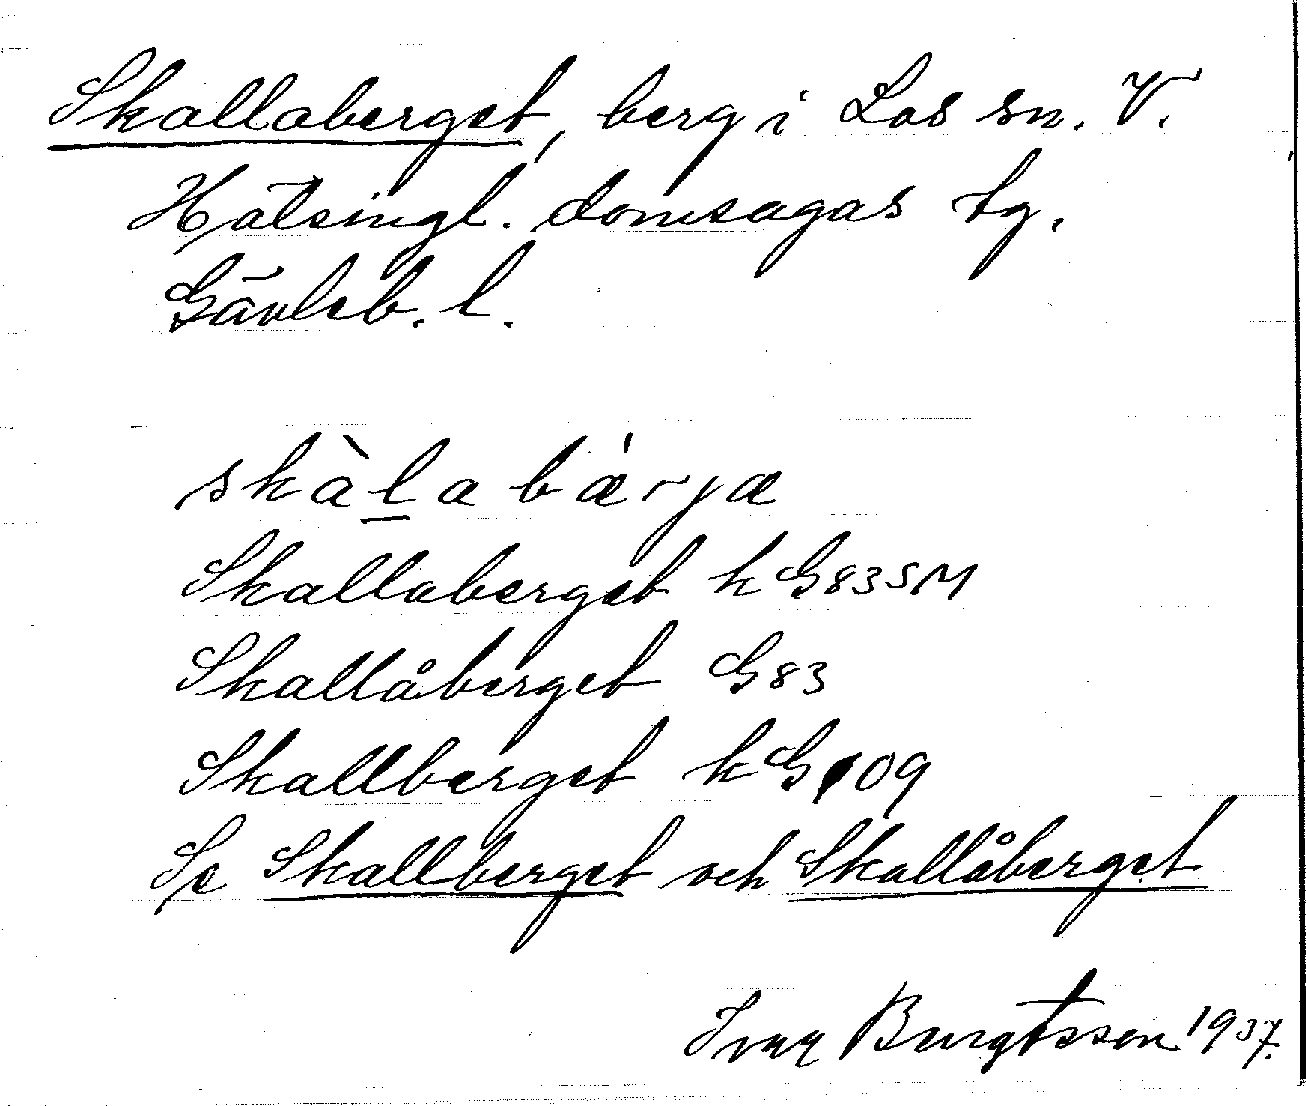 Skallaberget, berg i Los sn. V.
Hälsingl. domsagas tg.
Gävleb. l.
skàl̲abǽrjæ
Skallaberget kG83SM
Skallåberget G83
Skallberget kG109
Se Skallberget och Skallåberget
Bengtsson 1937.